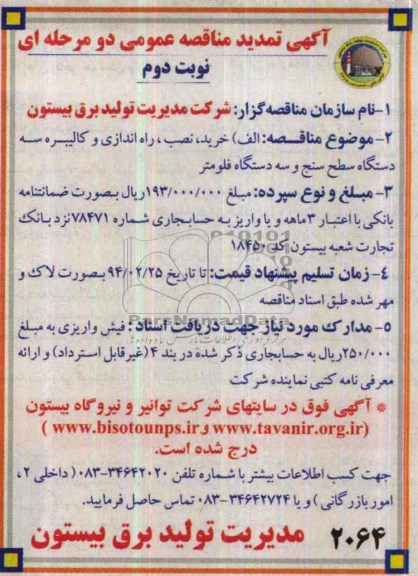 آگهی تمدید مناقصه عمومی دو مرحله ای
نوبت دوم
۱-نام سازمان مناقصه‌گزار: شرکت مدیریت تولید برق بیستون
۲-موضوع مناقصه: الف) خرید، نصب، راه اندازی و کالیبره سه
دستگاه سطح سنج و سه دستگاه فلومتر
۳-مبلغ و نوع سپرده: مبلغ ۱۹۳/۰۰۰/۰۰۰ریال بصورت ضمانتنامه
بانکی با اعتبار ۳ماهه و یا واریز به حسابجاری شماره ۷۸۴۷۱نزد بانک
تجارت شعبه بیستون کد ۱۸۴۵۰
۴- زمان تسلیم پیشنهاد قیمت: تا تاریخ ۹۴/۰۲/۲۵ بصورت لاک و
مهر شده طبق اسناد مناقصه
ParsNamadData
۵-مدارک مورد نیاز جهت دریافت اسناد: فیش واریزی به مبلغ
۲۵۰/۰۰۰ریال به حسابجاری ذکر شده در بند ۴(غیرقابل استرداد) و ارائه
معرفی نامه کتبی نماینده شرکت
* آگهی فوق در سایتهای شرکت توانیر و نیروگاه بیستون
(www.tavanir.org.ir و www.bisotounps.ir )
درج شده است.
جهت کسب اطلاعات بیشتر با شماره تلفن ۳۴۶۴۲۰۲۰-۰۸۳ (داخلی ۲،
امور بازرگانی) و یا ۳۴۶۴۲۷۲۴-۰۸۳ تماس حاصل فرمایید.
۲۰۶۴ مدیریت تولید برق بیستون